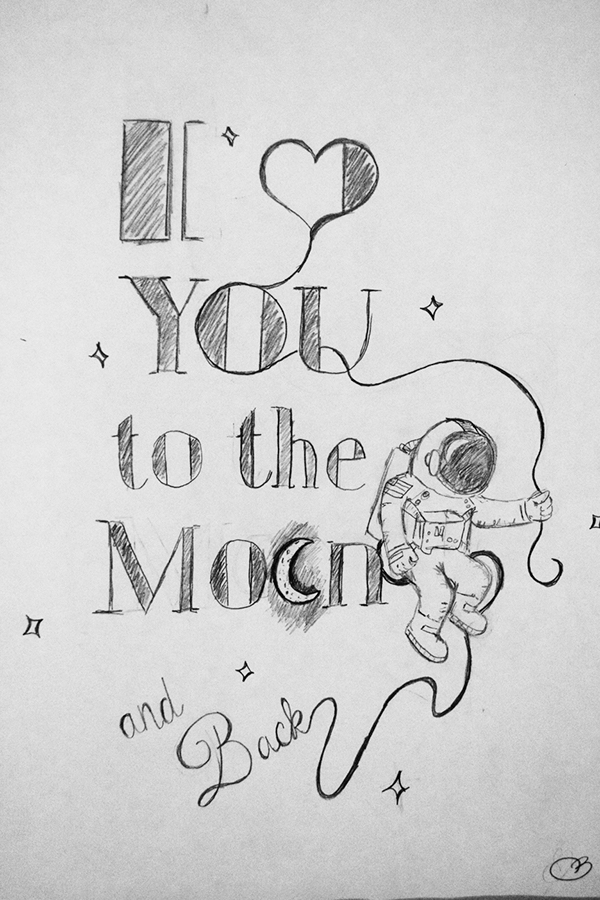 I ♥
YOU
to the
Moon
and
Back